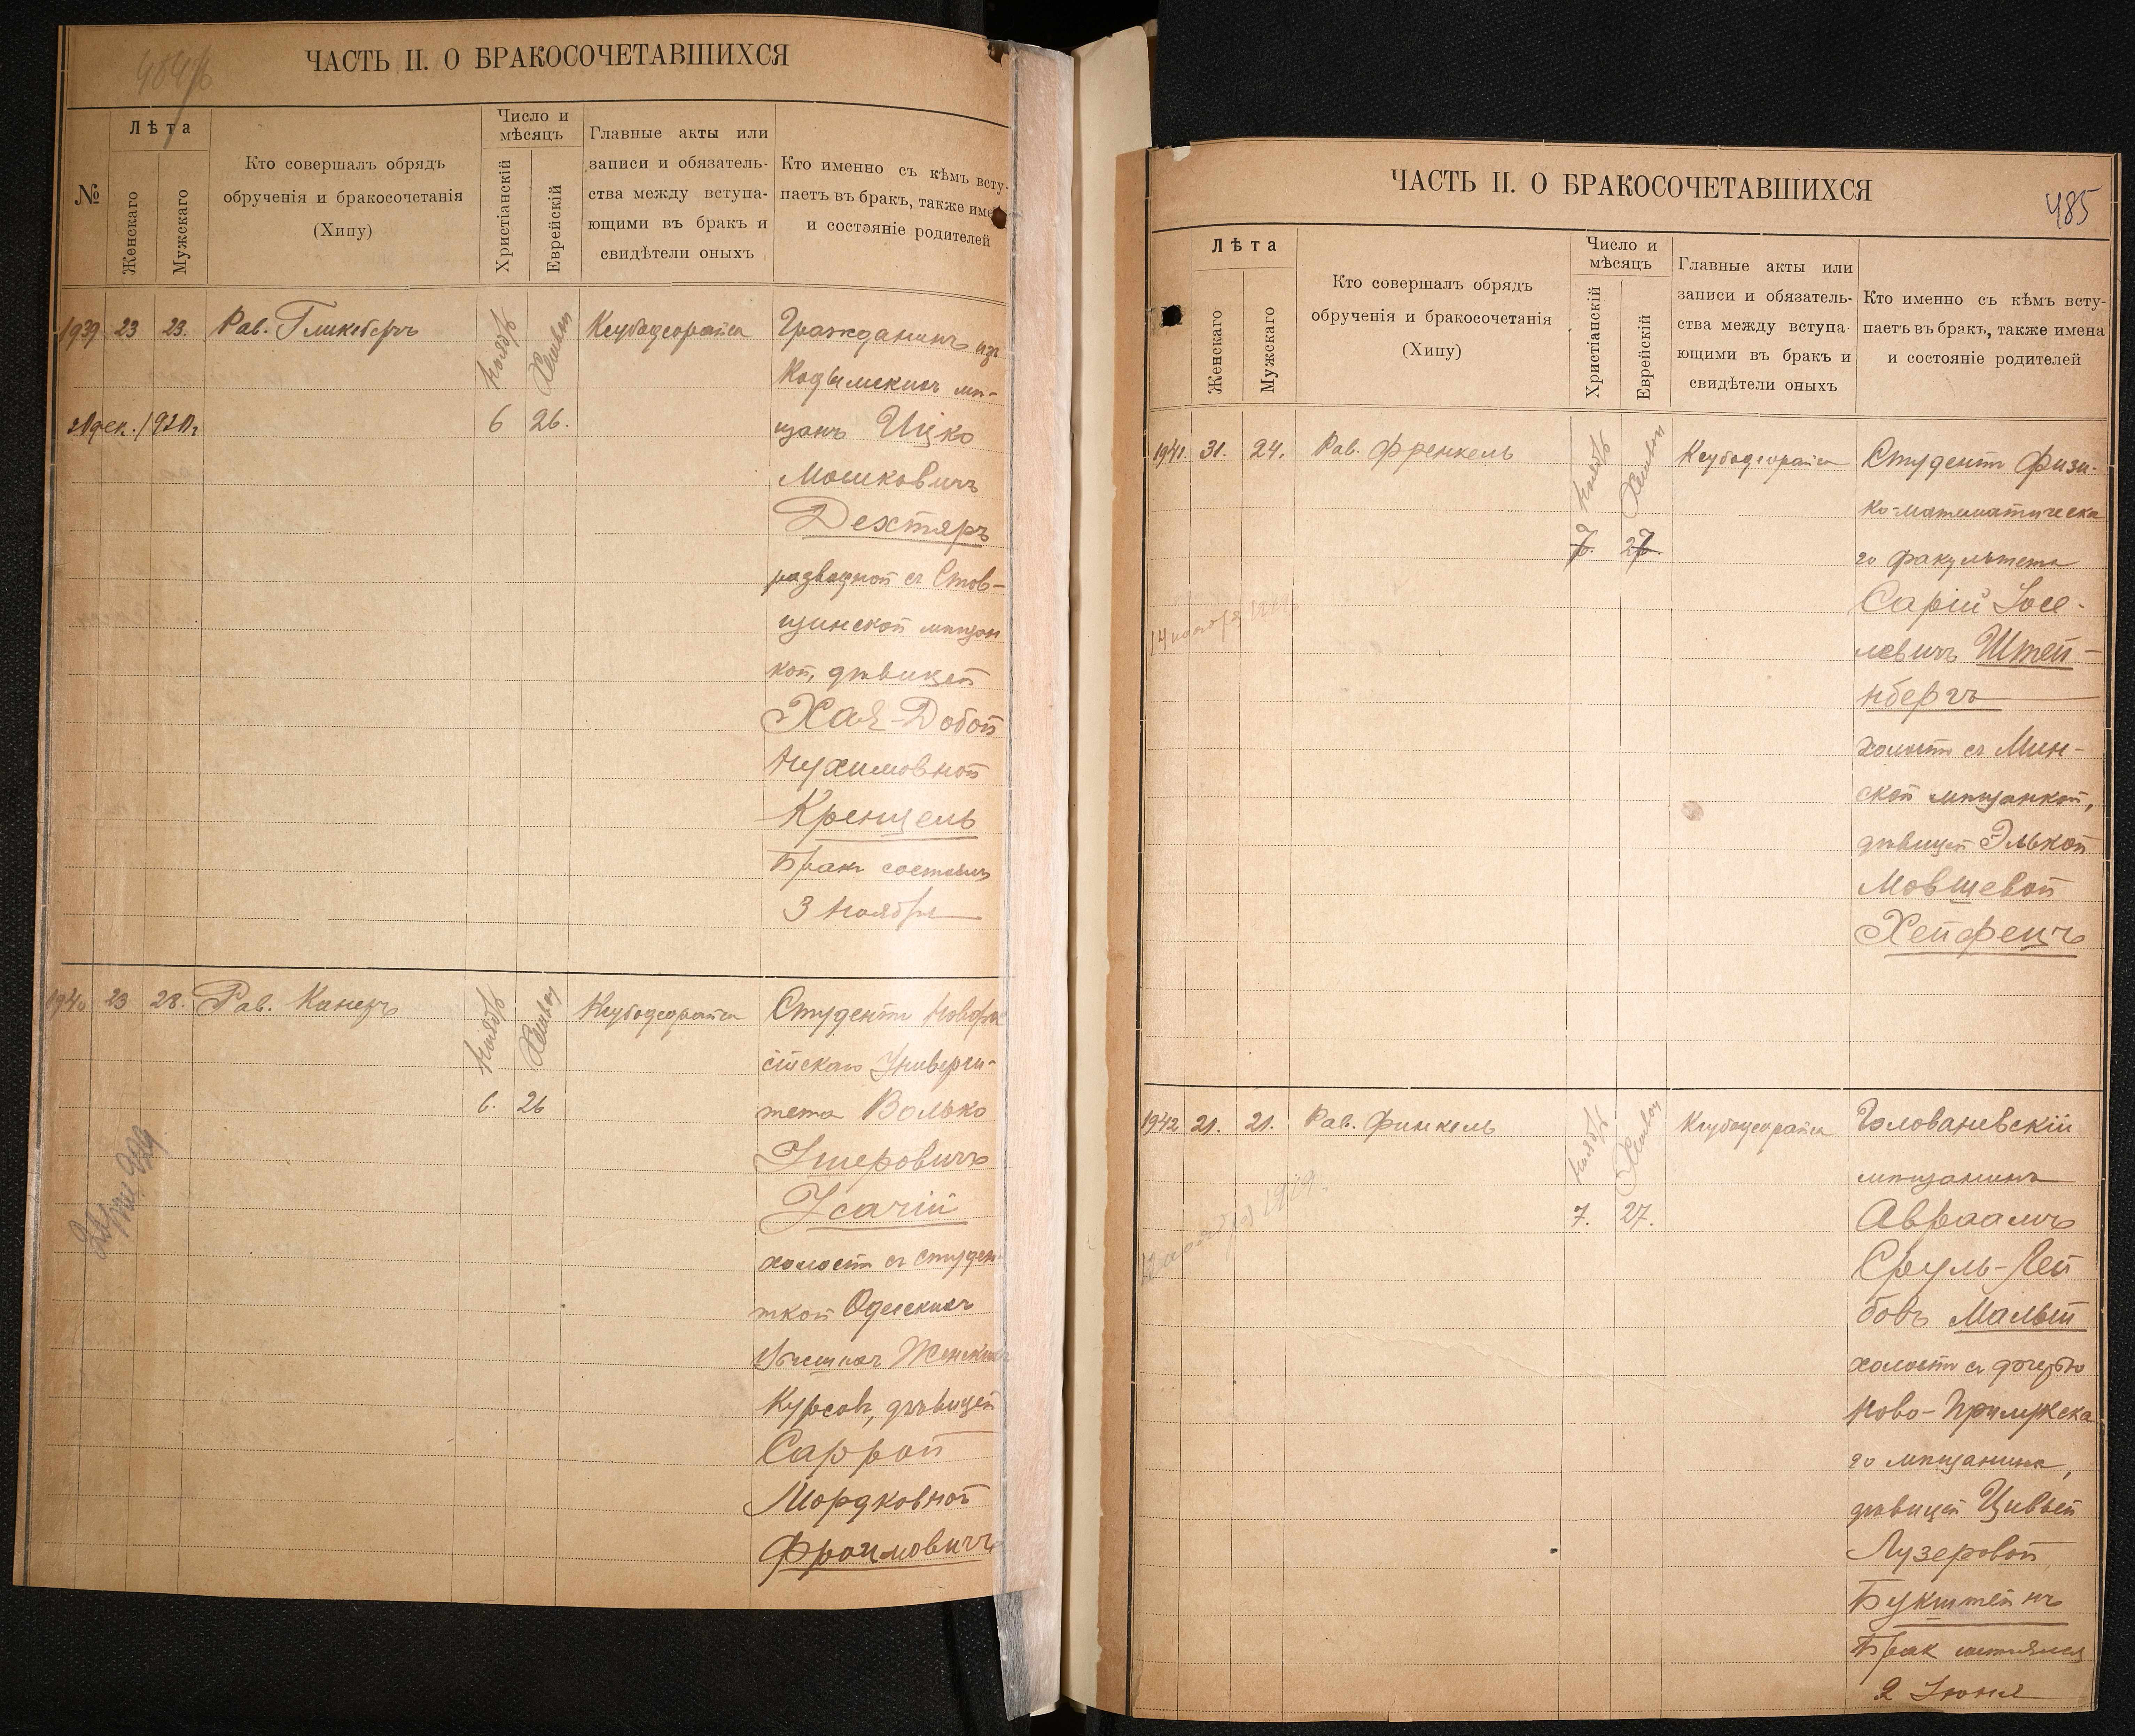 ЧАСТЬ II. О БРАКОСОЧЕТАВШИХСЯ
№
Лѣта
Женскаго
Мужскаго
Кто совершалъ обрядъ
обрученія и бракосочетанія
(Хипу)
Число и
мѣсяцъ
Христіанскій
Еврейскій
Главные акты или
записи и обязатель-
ства между вступа-
ющими въ бракъ и
свидѣтели оныхъ
Кто именно съ кѣмъ всту-
паетъ въ бракъ, также име
и состояніе родителей
1939 23 23. Рав. Гликсбергъ
Ноябрь Хешван
6 26.
Ксубадеорайса
Гражданинъ изъ
Кодымскихъ мѣ-
щанъ Ицко
Мошковичъ
Дехтяръ
разводной съ Став-
ищинской мѣщан
кой, дѣвицей
Хая-Добой
Нухимовной
Кренцель
Бракъ состоялся
3 Ноября
1940 23 28. Рав. Канецъ
Ноябрь Хешван
6. 26
Ксубадеорайса
Студентъ Новорос
сійскаго Универси-
тета Волько
Ушеровичъ
Усачій
холостъ съ студен-
ткой Одесскихъ
Высшихъ Женскихъ
Курсовъ, дѣвицей
Саррой
Мордковной
Фроимовичъ
ЧАСТЬ II. О БРАКОСОЧЕТАВШИХСЯ
485
Лѣта
Женскаго
Мужскаго
Кто совершалъ обрядъ
обрученія и бракосочетанія
(Хипу)
Число и
мѣсяцъ
Христіанскій
Еврейскій
Главные акты или
записи и обязатель-
ства между вступа-
ющими въ бракъ и
свидѣтели оныхъ
Кто именно съ кѣмъ всту-
паетъ въ бракъ, также имена
и состояніе родителей
1941. 31. 24. Рав. Френкель
Ноябрь Хешван
7. 27.
Ксубадеорайса
Студентъ Физи-
ко-математическа
го факультета
Сарій Іосе-
левичъ Штей-
нбергъ
холостъ съ Мин-
ской мѣщанкой,
дѣвицей Элькой
Мовшевой
Хейфецъ
1942 21. 21. Рав. Финкель
Ноябрь Хешван
7. 27.
Ксубадеорайса
Голованевскій
мѣщанинъ
Авраамъ
Сруль-Лей
бовъ Малый
холостъ съ дочерью
Ново-Прилукска
го мѣщанина,
дѣвицей Цивьей
Лузеровой
Букштейнъ
Брак состоялся
2 Іюня